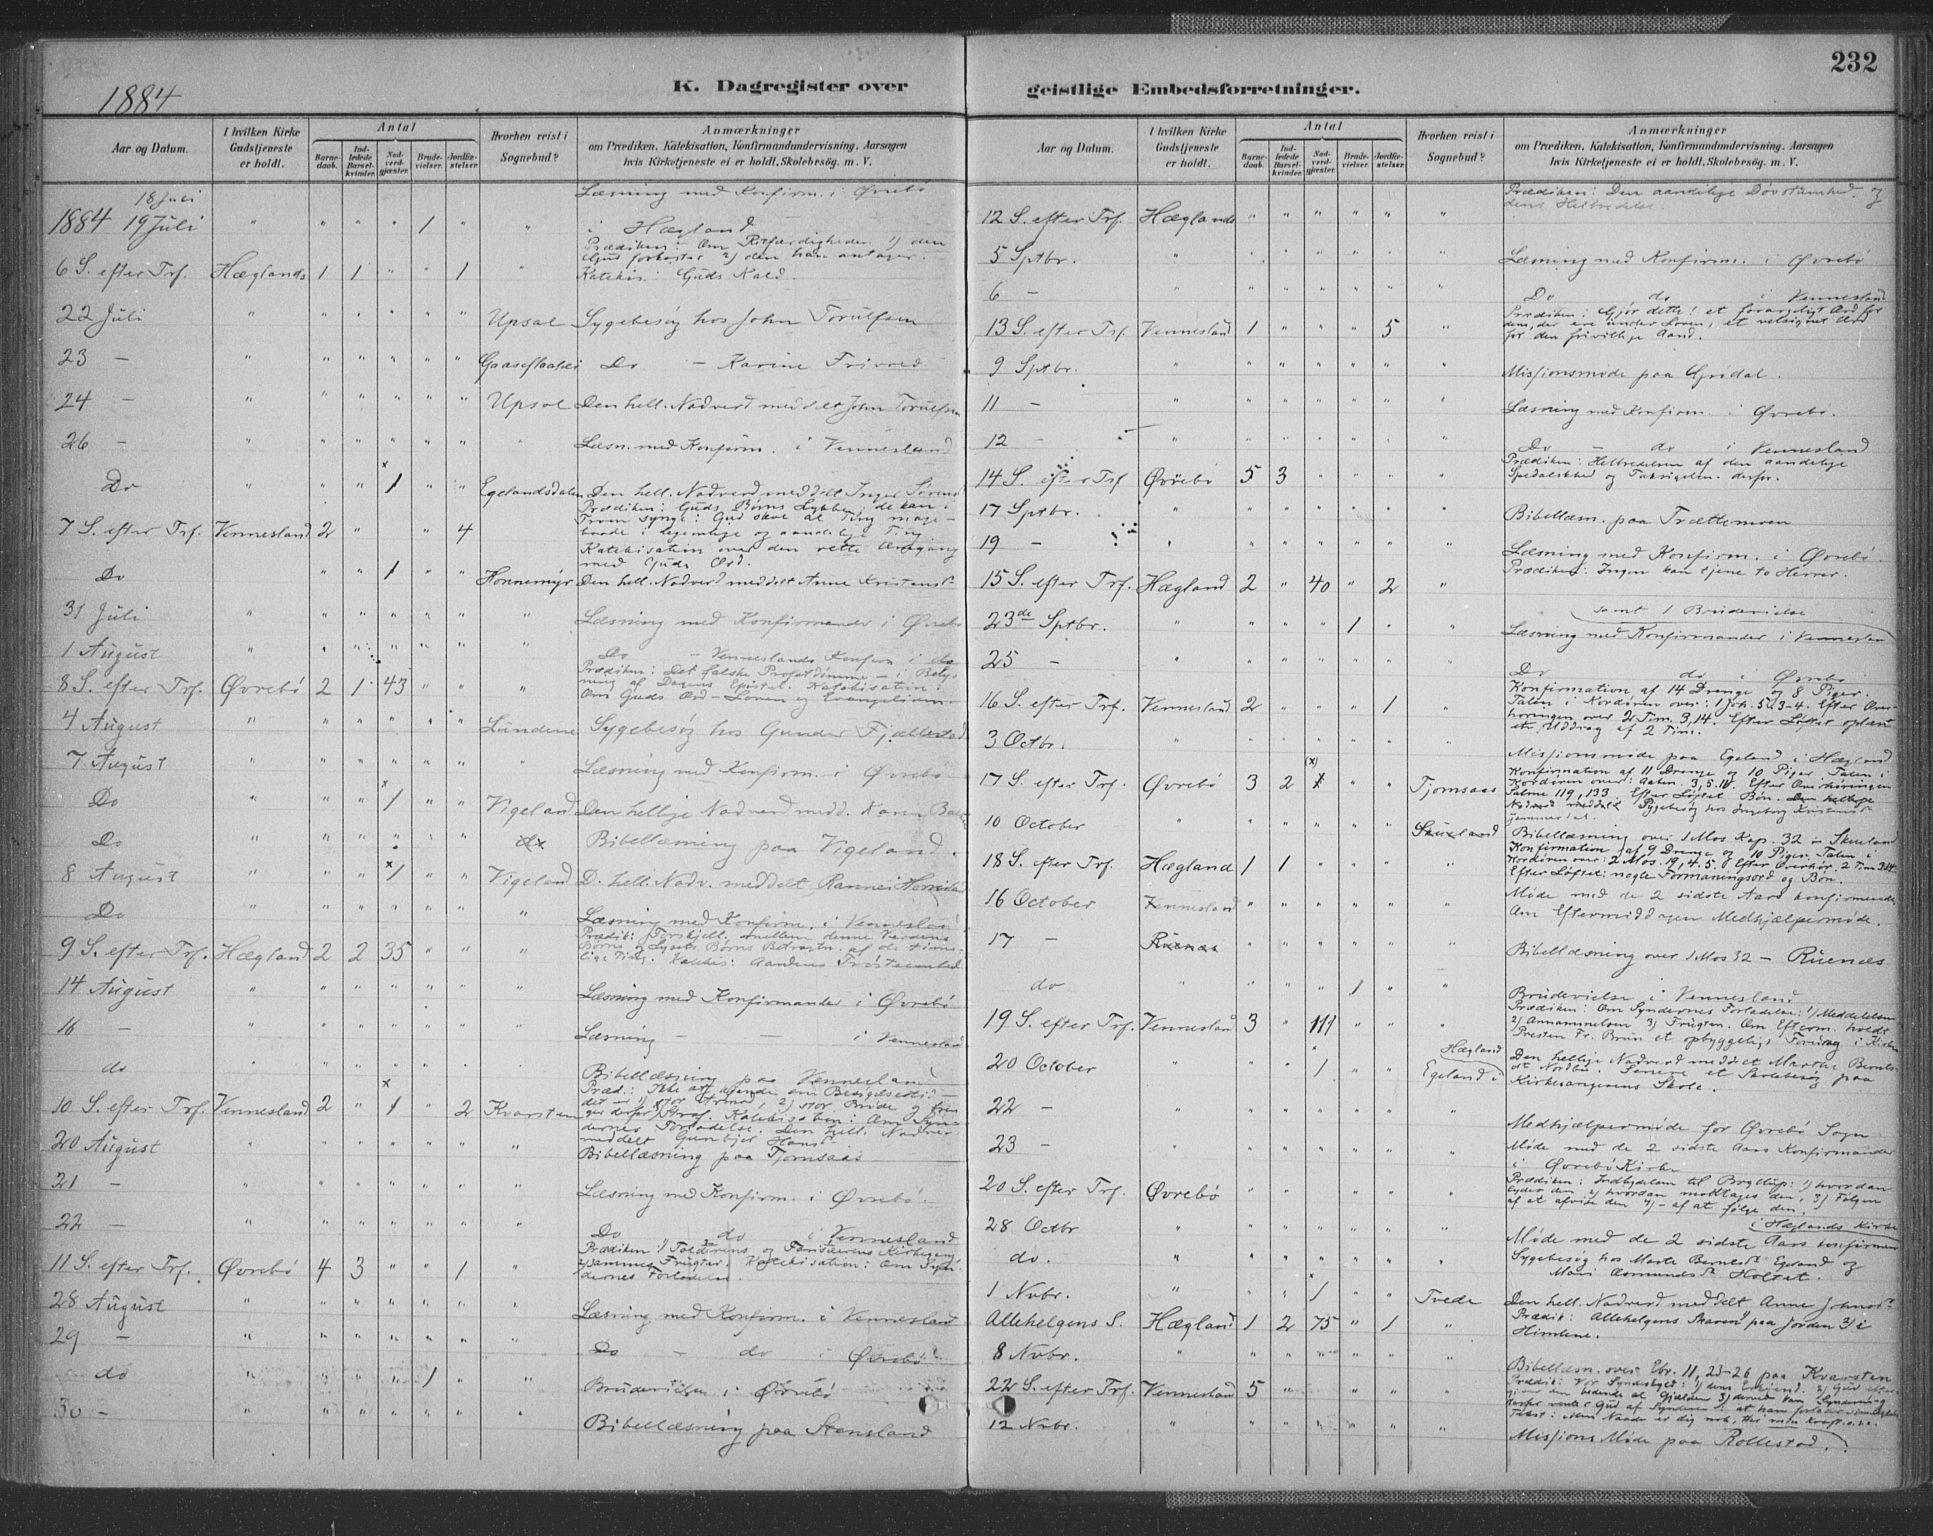 232
1884
K. Dagregister over
geistlige Embedsforretninger.
Aar og Datum.
I hvilken Kirke Gudstjeneste er holdt.
Antal
Barnedaab.
Indledede Barselkvinder.
Nadverdgjæster.
Brudevielser.
Jordfæstelser.
Hvorhen reist i Sognebud?
Anmærkninger
om Prædiken, Katekisation, Konfirmandundervisning. Aarsagen
hvis Kirketjeneste ei er holdt. Skolebesøg. m. V.
18 Juli Læsning med Konfirm. i Øvrebø
1884 19 Juli " " " " 1 " " i Hægland
Prædiken: Om Retfærdigheden 1) den
Gud forkaster 2) den han antager.
6 S. efter Trf. Hæglands 1 1 " " 1 " Katekis: Guds Kald.
22 Juli " " " " " " Upsal Sygebesøg hos John Torulfsen
23 - " " " " " " Do - Karine
24 - " " " " " " Upsal Den hell. Nadverd meddelt John Torulfsen
26 - " " " " " " " Læsn. med Konfirm. i Vennesland
Do " " " x 1 " " Egelandsdalen Den hell. Nadverd meddelt Inger
Prædiken: Guds Børns Lykke, de kan i
7 S. efter Trf. Vennesland 2 " " " 4
Katekisation over den rette Omgang
med Guds Ord.
Do " " 1 " " Honnemyr Den hell. Nadverd meddelt Anne Kristensd.
31 Juli " " " " " " " Læsning med Konfirmander i Øvrebø
1 August " " " " " " Do - Venneslands Konfirm. i do
Prædiken: Det falske Profetdømme - i Belys
ning af Dagens Epistel. Katekisation:
8 S. efter Trf. Øvrebø 2 1 43 " " " Om Guds Ord - Loven og Evangelium
4 August " " " " " " Lundene Sygebesøg hos Gunder Fjællestad
7 August Læsning med Konfirm. i Øvrebø
Do " " " x 1 " " Vigeland Den hellige Nadverd medd. Karen
Do " " " " " " do Bibellæsning paa Vigeland.
8 August " " " x 1 " " Vigeland D. hell. Nadv. meddelt
Do " " " " " " " Læsning med Konfirm. i Vennesland
Prædik: Forskjell. mellem denne Verdens
Børns og Lysets Børns Betragtn. af de time-
9 S. efter Trf. Hægland 2 2 35 " " " lige Ting. Katekis: Aandens
14 August " " " " " " " Læsning med Konfirmander i Øvrebø
16 - " " " " " " " Læsning - - i Vennesland
do " " " " " " Bibellæsning paa Vennesland
10 S. efter Trf. Vennesland 2 " x 1 " 2 Kvarsten
Katekisation: Om Syn-
dernes Forladelse. Den hell. Nadver
meddelt Gunbjør Hansd.
20 August " Bibellæsning paa Tjomsaas
21 - " " " " " " " Læsning med Konfirm. i Øvrebø.
22 - " " " " " " " Do do i Vennesland
Prædiken: 1) Tolderens og Farisæerens Kirkegang
11 S. efter Trf. Øvrebø 4 3 " " 1 " Katekisation: Om Syn-
dernes Forladelse.
28 August " " " " " " " Læsning med Konfirm. i Vennesland
29 - " " " " " " " Do - do i Øvrebø
do " " " " 1 " " Brudevielse i Øvrebø
30 - " " " " " " " Bibellæsning paa Stensland
Aar og Datum.
I hvilken Kirke Gudstjeneste er holdt.
Antal
Barnedaab.
Indledede Barselkvinder.
Nadverdgjæster.
Brudevielser.
Jordfæstelser.
Hvorhen reist i Sognebud?
Anmærkninger
om Prædiken, Katekisation, Konfirmandundervisning. Aarsagen
hvis Kirketjeneste ei er holdt. Skolebesøg. m. V.
Prædiken: Den aandelige Døvstumhed og
dens Helbredelse.
12 S. efter Trf. Hæglands " " " " " "
5 Sptbr. " " " " " " " Læsning med Konfirm. i Øvrebø
6 - " Do do i Vennesland
Prædiken: Gjør dette! et Ord for
dem, der ere under Loven, et velsignet Ord
13 S. efter Trf. Vennesland 1 " " " 5 " for den frivillige Aand.
9 Sptbr. " " " " " " " Missionsmøde paa Grødal.
11 - " " " " " " " Læsning med Konfirm. i Øvrebø.
12 - " " " " " " " Do - do i Vennesland
Prædiken: Helbredelsen af den aandelige
14 S. efter Trf Øvrebø 5 3 " " " " Spedalskhed og Taksigelsen derfor.
17 Sptbr. " " " " " " Bibellæsn. paa Trættemoen
19 - " " " " " " " Læsning med Konfirm. i Øvrebø.
Prædiken: Ingen kan tjene to Herrer.
15 S. efter Trf. Hægland 2 " 40 " 2 "
samt 1 Brudevielse
23de Sptbr. " " " " 1 " " Læsning med Konfirmander i Vennesland
25 - " " " " " " " Do do i Øvrebø
Konfirmation af 14 Drenge og 8 Piger.
Talen i Kordøren over: 1 Joh. 5, 3-4. Efter Over-
høringen over 2 Tim. 3,14. Efter Løftet oplæst
16 S. efter Trf. Vennesland 2 " " " 1 " et Uddrag af 2 Tim.
3 Octbr. " " " " " " Missionsmøde paa Egeland i Hægland
Konfirmation af 11 Drenge og 10 Piger. Talen i
Kordøren over: Aaben. 3, 5.14. Efter Overhøringen
17 S. efter Trf. Øvrebø 3 2 (x) " " Tjomsaas Salme 119, 133. Efter Løftet Bøn. Den hellige
Nadverd meddelt Sygebesøg hos Ingeborg Kristensd.
10 October " " " " " " Skueland Bibellæsning over 1 Mos Kap. 32 in Skueland
Konfirmation af 9 Drenge og 10 Piger. Talen i
Kordøren over: 2 Mos. 19, 4. 5. Efter Overhør. 2 Tim 3,14.
18 S. efter Trf. Hægland 1 1 " " " " Efter Løftet: nogle Formaningsord og Bøn.
16 October Vennesland " " " " " " Møde med de 2 sidste Aars konfirmander
Om Eftermiddagen Medhjælpermøde.
17 - Ruenæs " " " " " " Bibellæsning over 1 Mos 32 - Ruenæs
do " " " " 1 " " Brudevielse i Vennesland
Prædiken: Om Syndernes Forladelse: 1) Meddelelsen
2) Annammelsen 3) Frugten. Om Efterm. holdt
19 S. efter Trf. Vennesland 3 " 111 " " " Presten Fr. Brun et opbyggeligt Foredrag i Kirken
20 October " " " x 1 " " Egeland i Hægland Den hellige Nadverd meddelt Marthe Berntsd.
Nordbø. Senere et Skolebesøg paa
Kirkesangerens Skole.
22 - " " " " " " " Medhjælpermøde for Øvrebø Sogn
23 - " " " " " " " Møde med de 2 sidste Aars Konfirmander
i Øvrebø Kirke
20 S. efter Trf. Øvrebø " " " " " " Prædiken: Indbydelsen til Bryllup: 1) hvordan
lyder den 2) hvordan modtages den, 3) Følgen
af at afvise den 4) - af at følge den.
28 Octbr " " " " " " " Møde med de 2 sidste Aars konfirmander
i Hæglands Kirke
do. " " " " " " " Sygebesøg hos Marte Berntsd. Egeland og
Mari Asmundsd. Holtet.
1 Nvbr. " " " x 1 " " Tvede Den hell. Nadverd meddelt Anne Johnsd.
Allehelgens S. Hægland 1 2 75 " 1 " Prædik: Allehelgens Skaren paa Jorden 3) i
Himlene.
8 Nvbr. " " " " " " " Bibellæsn. over Ebr. 11, 23-26 paa Kvarsten
22 S. efter Trf. Vennesland 5 " " " " "
Tøst: Min Naade er dig nok, thi min kraft o.s.v.
12 Nvbr. " " " " " " " Missions Møde paa Rollestad.